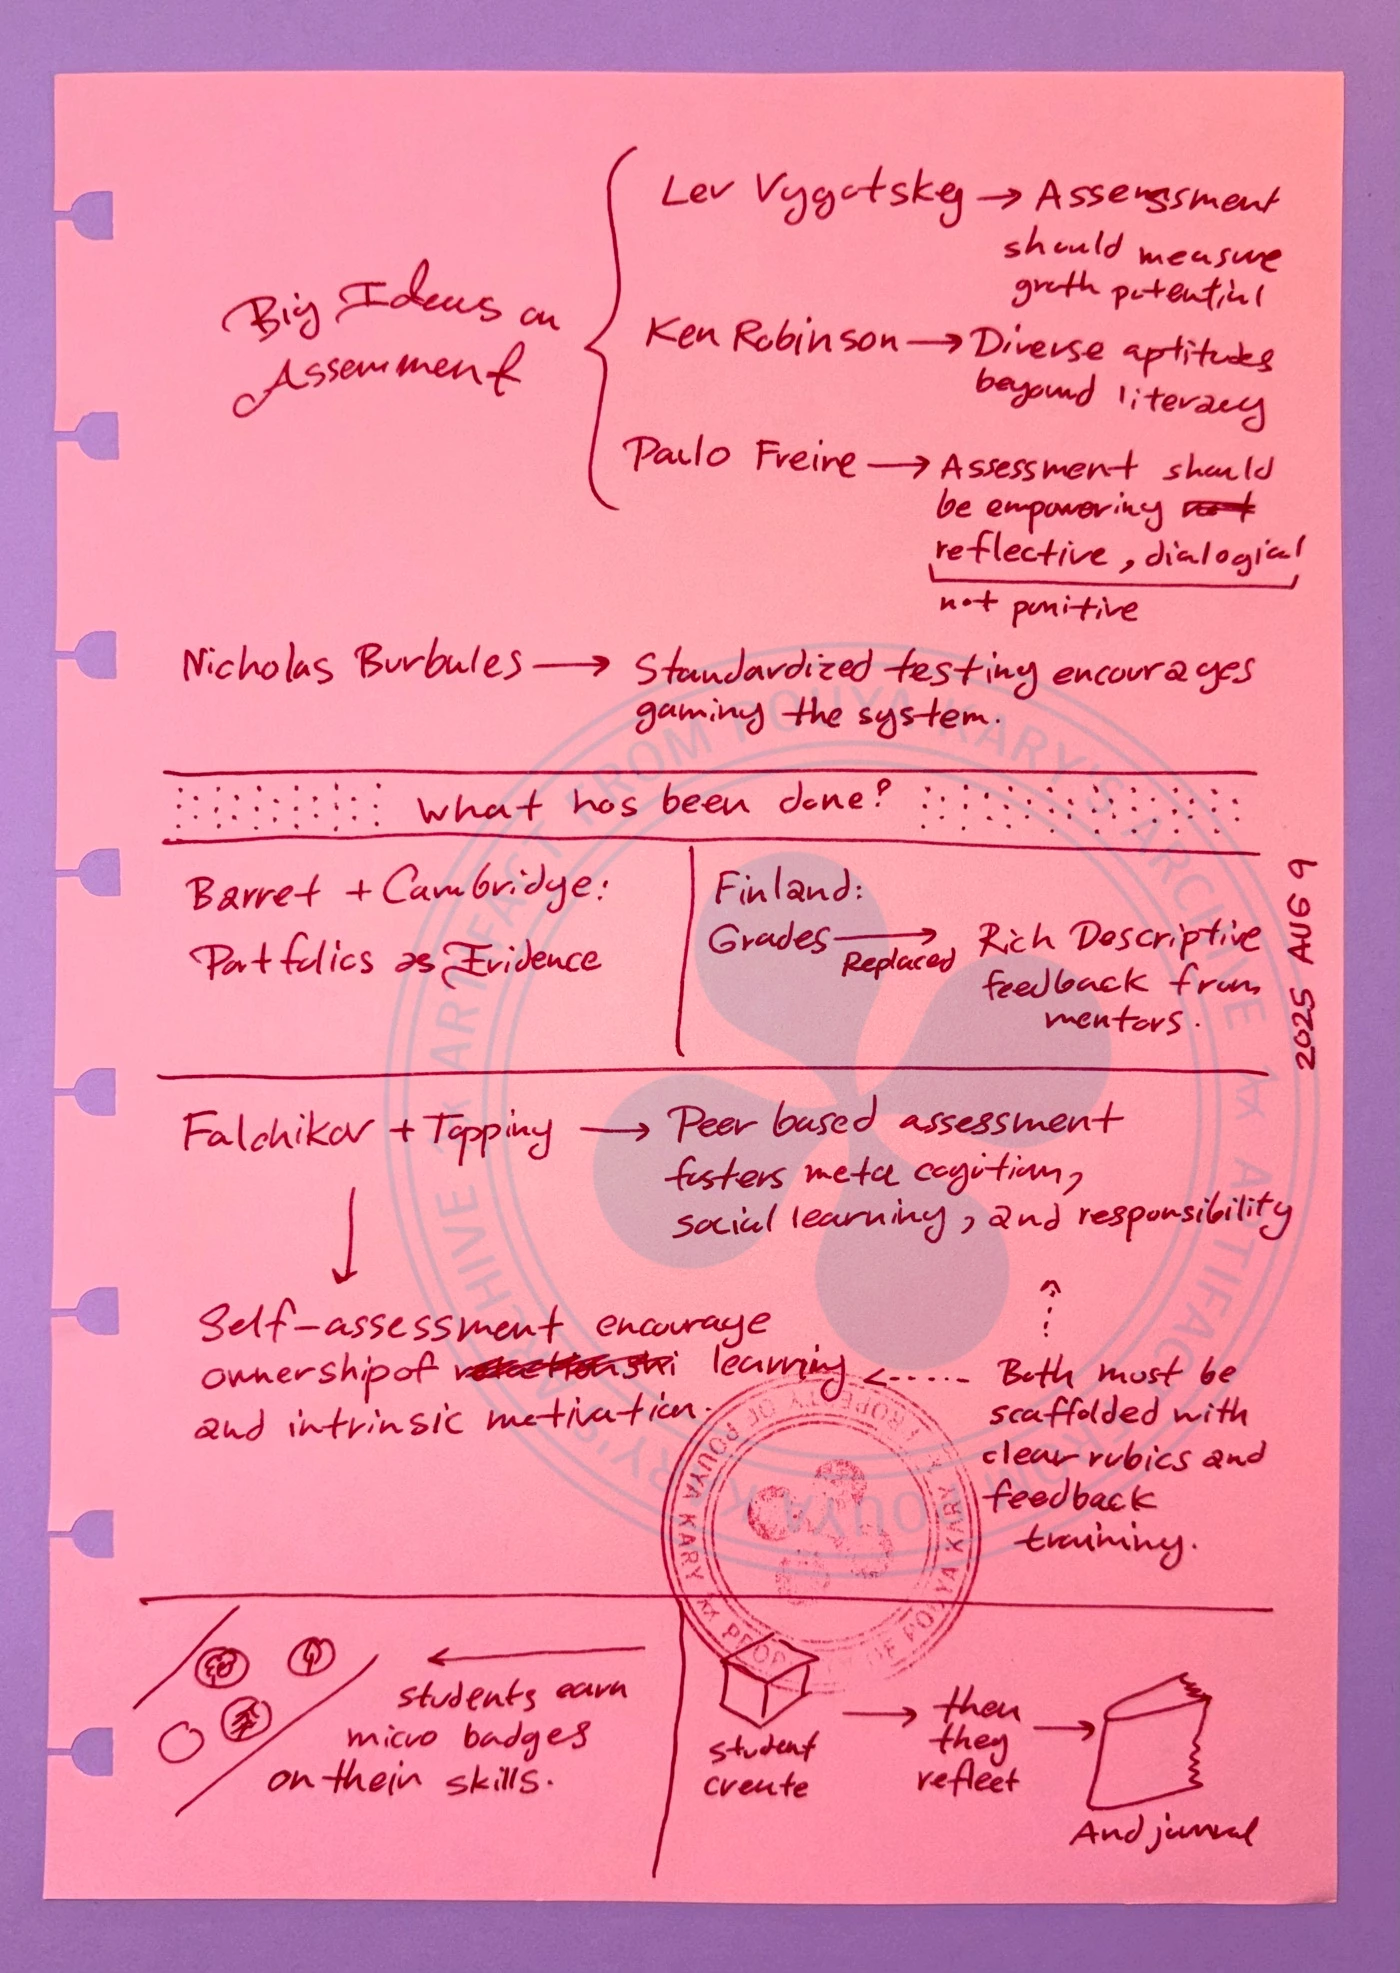 Big Ideas on
Assemment
Lev Vygotskey → Assensment
should measure
groth potential
Ken Robinson → Diverse aptitudes
beyound literacy
Paulo Freire → Assessment should
be empowering
reflective, dialogial
not punitive
Nicholas Burbules → Standardized testing encourages
gaming the system.
What has been done?
Barret + Cambridge:
Portfolios as Evidence
Finland:
Grades → Rich Descriptive
Replaced
feedback from
mentors.
2025 AUG 9
Falchikov + Topping → Peer based assessment
fosters meta cogition,
social learning, and responsibility
Self-assessment encourage
ownership of learning
and intrinsic motivation.
Both must be
scaffolded with
clear rubics and
feedback
training.
students earn
micro badges
on thein skills.
student
create
→ then
they
reflect
→
And journal
ARTIFACT FROM POUYA KARY'S ARCHIVE
ARTIFACT FROM POUYA KARY'S ARCHIVE
PROPERTY OF POUYA KARY
PROPERTY OF POUYA KARY